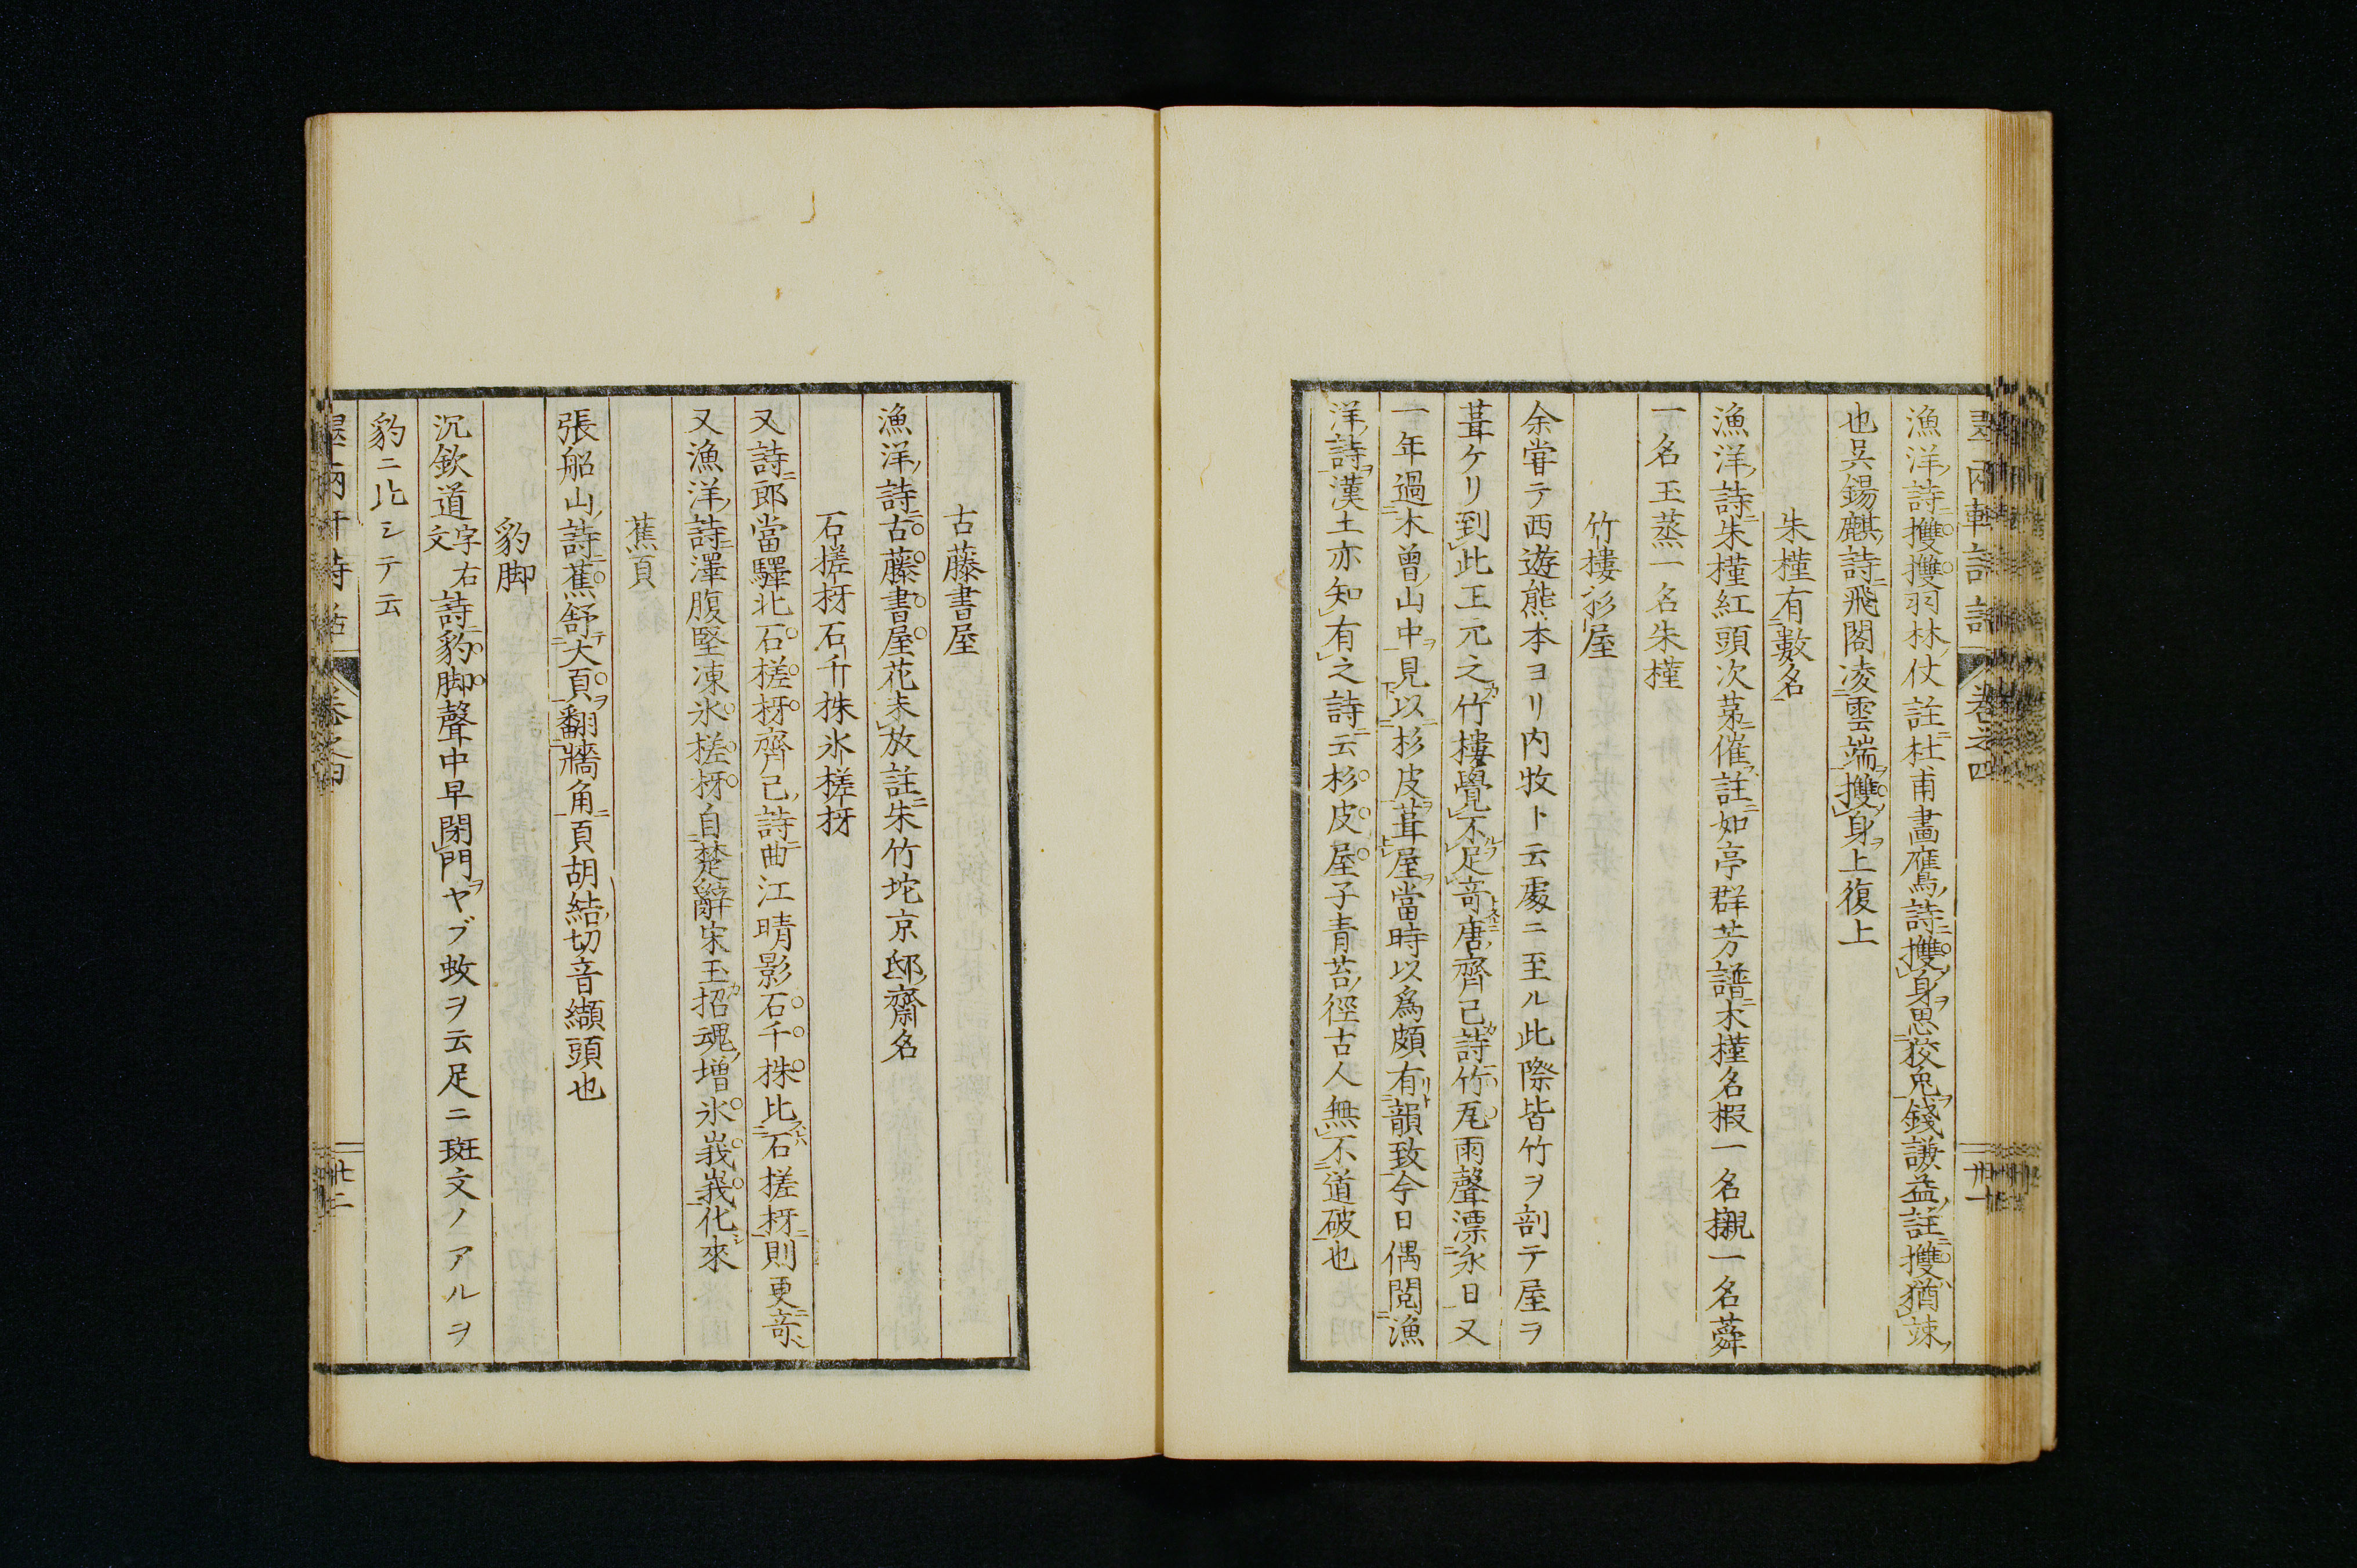 漁洋詩㩳㩳羽林仗註杜甫畫鷹詩㩳身思狡兔錢謙益註㩳猶竦
也吳錫麒詩飛閣凌雲端㩳身上復上
朱槿有數名
漁洋詩朱槿紅頭次苐催註如亭群芳譜木槿名椴一名櫬一名蕣
一名王蒸一名朱槿
竹樓杉屋
余甞テ西遊熊本ヨリ内牧ト云處ニ至ル此際皆竹ヲ剖テ屋ヲ
葺ケリ到此王元之竹樓覺不足奇唐齊己詩竹瓦雨聲漂永日又
一年過木曽山中見以杉皮葺屋當時以爲頗有韻致今日偶閲漁
洋詩漢土亦知有之詩云杉皮屋子青苔徑古人無不道破也
古藤書屋
漁洋詩古藤書屋花未放註朱竹垞京邸齋名
石槎枒石千株氷槎枒
又詩郎當驛北石槎枒齊己詩曲江晴影石千株比石槎枒則更奇
又漁洋詩澤腹堅凍氷槎枒自楚辭宋玉招魂増氷峩峩化來
蕉頁
張船山詩蕉舒大頁翻牆角頁胡結切音纈頭也
豹脚
沉欽道字右文詩豹脚聲中早閉門ヤブ蚊ヲ云足ニ斑文ノアルヲ
豹ニ比シテ云
卷之四
廿二